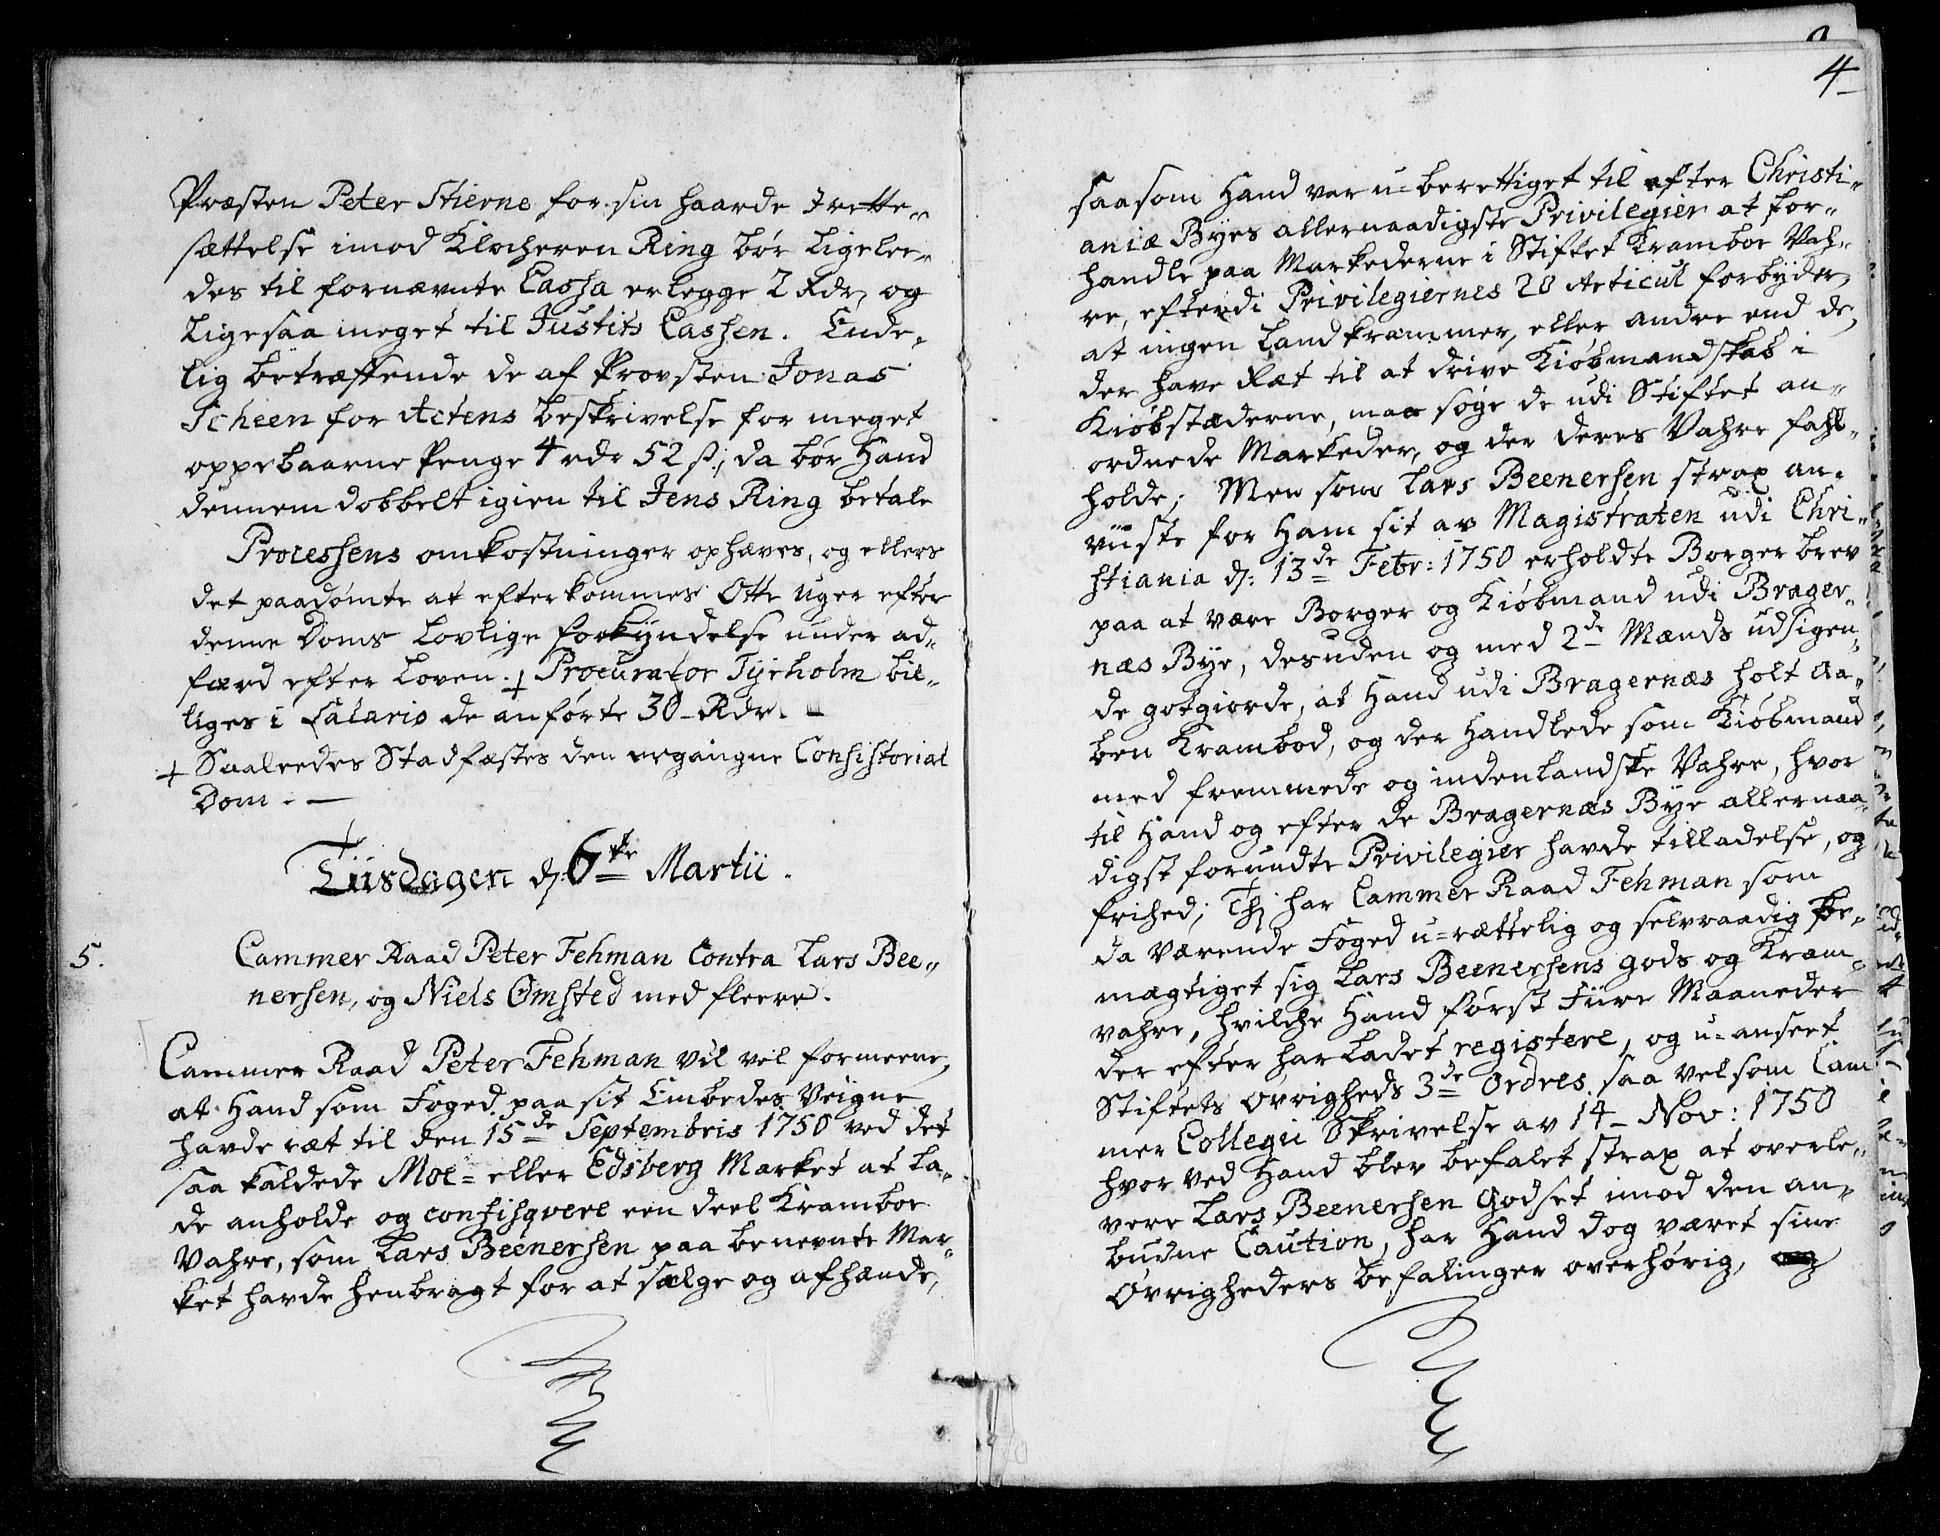 Præsten Peter Stierne for sin haarde Irette„
sættelse imod Klocheren Ring bør ligelee„
des til fornævnte Cassa erlegge 2 Rdr, og
ligesaa meget til Justits Cassen. Ende„
lig betræffende de af Provsten Jonas
Scheen for Actens beskrivelse for meget
oppebaarne Penge 4 rdr 52 s; da bør Hand
dennem dobbelt igien til Jens Ring betale
Processens omkostninger ophæves, og ellers
det paadømte at efterkommes Otte Uger efter
denne Doms lovlige forkyndelse under ad„
færd efter Loven. + Procurator Tyrholm bil„
liges i Salario de anførte 30 Rdr.
+ Saaleedes Stadfæstes den ergangne Consistorial
Dom. —
Tiisdagen d. 6te Martii.
5.
Cammer Raad Peter Fehman Contra Lars Bee„
nersen, og Niels Omsted med fleere.
Cammer Raad Peter Fehman vil vel formeene,
at Hand som Foged paa sit Embedes Veigne
havde ræt til den 15de Septembris 1750 ved det
saa kaldede Moe= eller Edsberg Market at la„
de anholde og confisqvere een deel Kramboe
Vahre, som Lars Beenersen paa benevnte Mar„
ket havde henbragt for at sælge og afhænde,
4
saasom Hand var u=berettiget til efter Christi„
aniæ Byes allernaadigste Privilegier at for„
handle paa Markederne i Stiftet Kramboe Vah„
re, efterdi Privilegiernes 20 Articul forbyder,
at ingen Landkrammer, eller andre end de,
der have Ræt til at drive Kiøbmandskab i
Kiøbstæderne, maa søge de udi Stiftet an„
ordnede Markeder, og der deres Vahre fahl„
holde; Men som Lars Beenersen strax an„
viiste for Ham sit av Magistraten udi Chri„
stiania d: 13de Febr: 1750 erholdte Borger brev
paa at være Borger og Kiøbmand udi Brager„
næs Bye, desuden og med 2de Mænds udsigen„
de gotgiorde, at Hand udi Bragernæs holt Aa„
ben Krambod, og der Handlede som Kiøbmand
med fremmede og indenlandske Vahre, hvor
til Hand og efter de Bragernæs Bye allernaa„
digst forundte Privilegier havde tilladelse, og
frihed; Thj har Cammer Raad Fehman som
da værende Foged u=rættelig og selvraadig be„
mægtiget sig Lars Beenersens gods og Kram„
vahre, hvilche Hand først Fiire Maaneder
der efter har ladet registere, og u=anseet
Stiftets Øvrigheds 3de Ordres saa vel som Cam
mer Collegii Skrivelse av 14 Nov: 1750
hvor ved Hand blev befalet strax at overle„
vere Lars Beenersen Godset imod den an„
budne Caution, har Hand dog været sine
Øvrigheders befalinger overhørig,